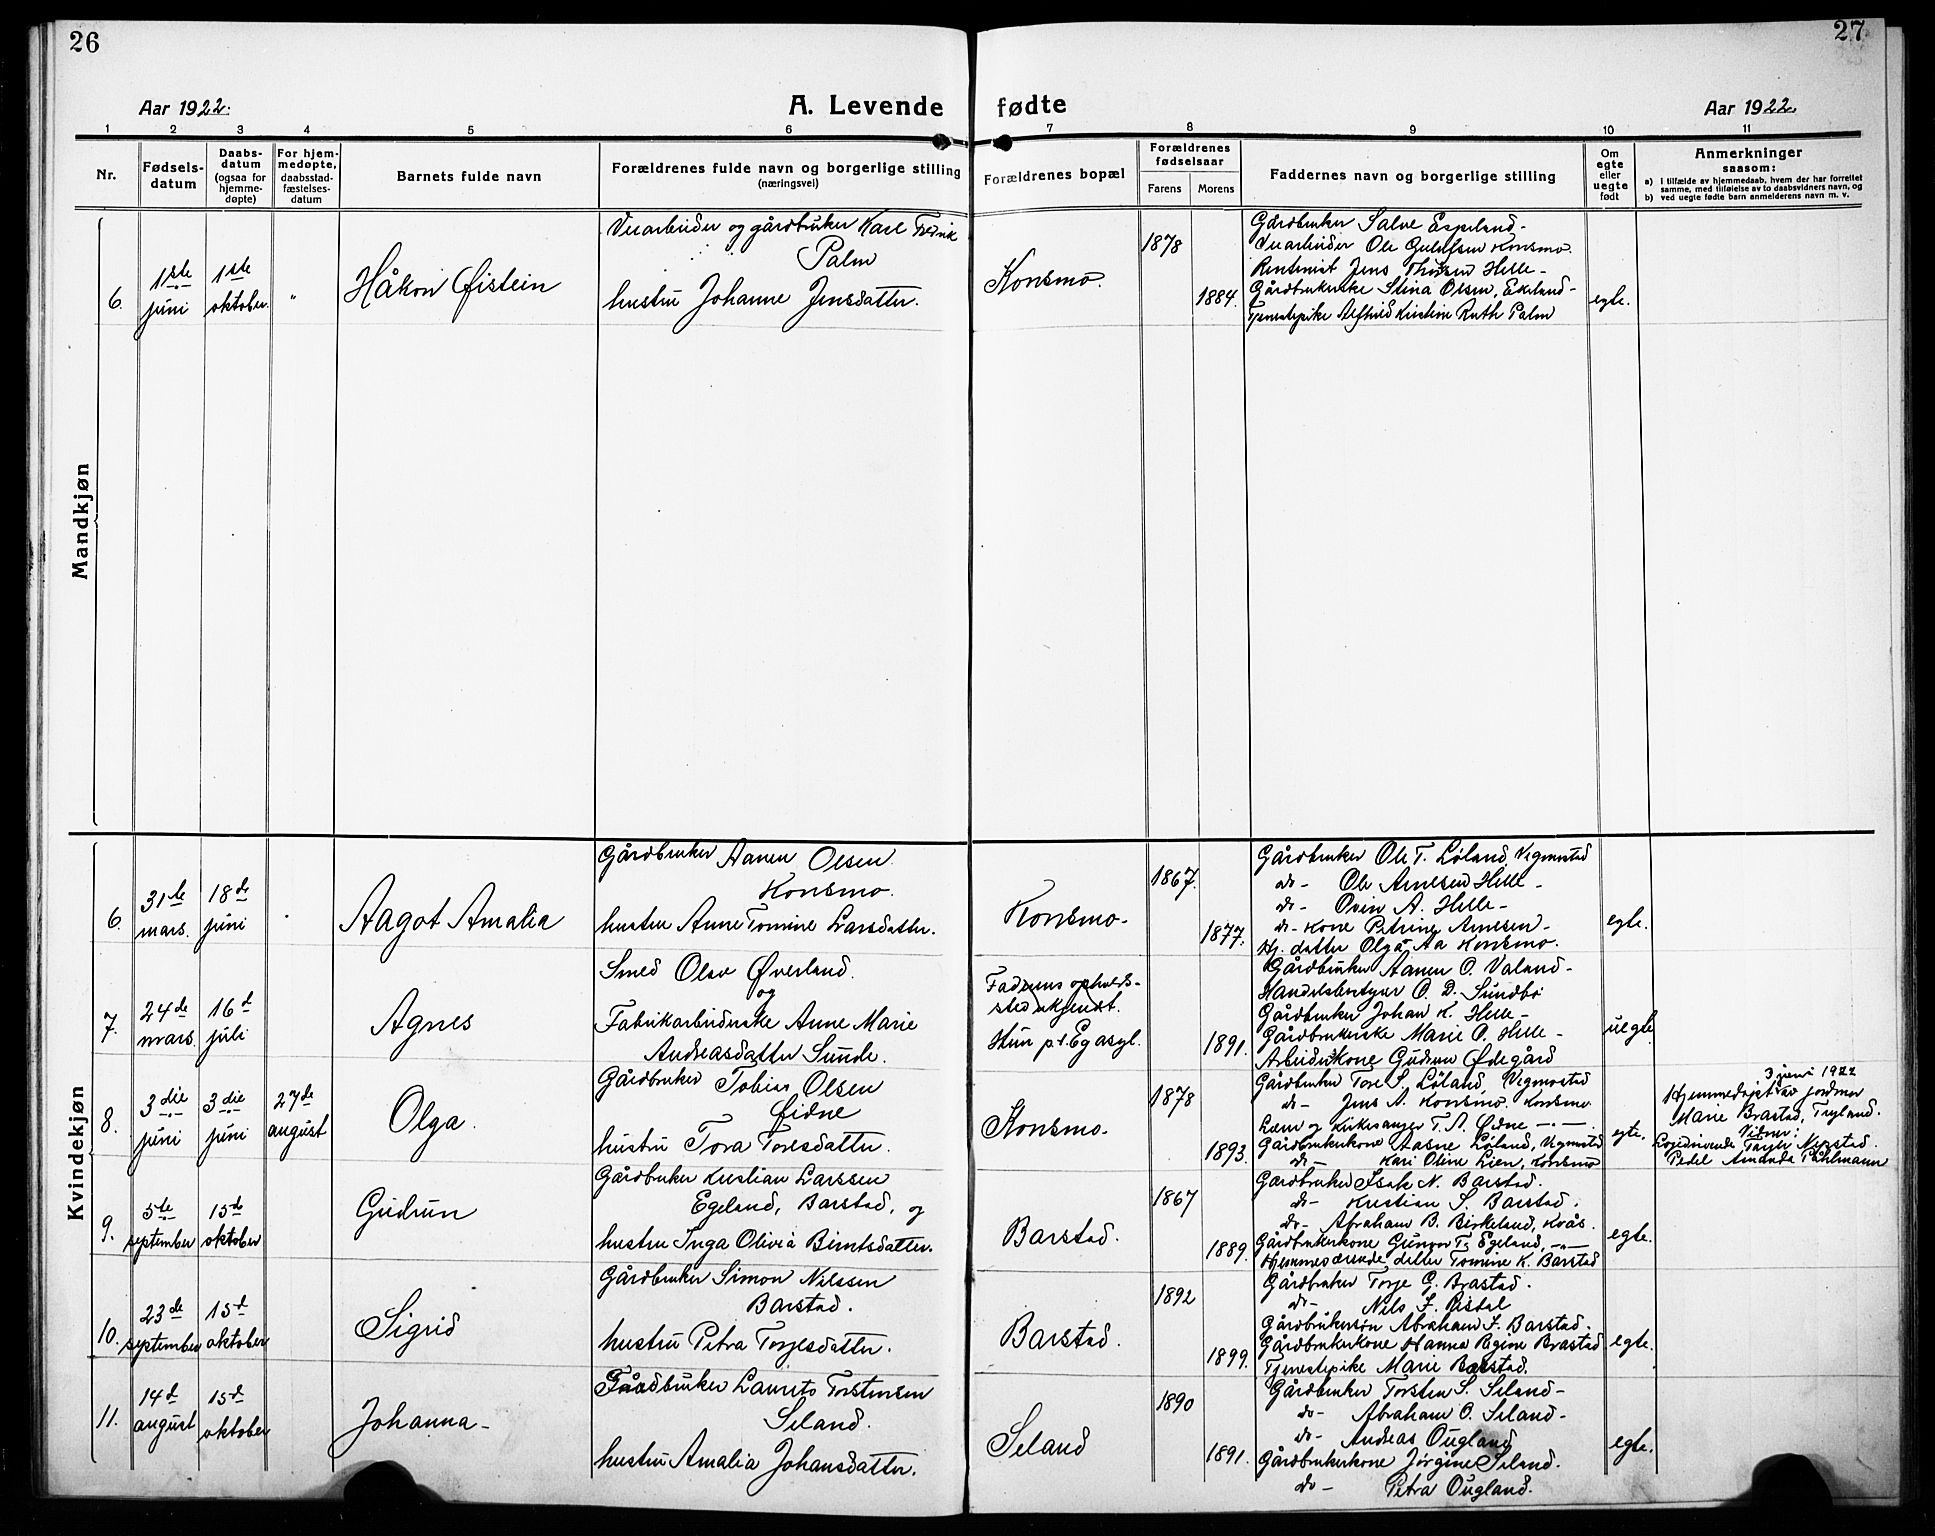 26
27
Aar 1922.
A. Levende fødte
Aar 1922.
1 2 3 4 5 6 7 8 9 10 11
Nr.
Fødsels-
datum
Daabs-
datum
(ogsaa for
hjemme-
døpte)
For hjem-
medøpte,
daabsstad-
fæstelses-
datum
Barnets fulde navn
Forældrenes fulde navn og borgerlige stilling
(næringsvei)
Forældrenes bopæl
Forældrenes
fødselsaar
Farens
Morens
Faddernes navn og borgerlige stilling
Om
egte
eller
uegte
født
Anmerkninger
saasom:
a) I tilfælde av hjemmedaab, hvem der har forrettet
samme, med tilføielse av to daabsvidners navn, og
b) ved uegte fødte barn anmelderens navn m. v.
Mandkjøn
6.
1ste
juni
1ste
oktober.
"
Håkon Øistein
Veiarbeider og gårdbruker Karl Fredrik
Palm
hustru Johanne Jensdatter.
Konsmo.
1878
1884.
Gårdbruker Salve Espeland -
Veiarbeider Ole Konsmo.
Rentenist Jens Helle -
Gårdbrukerske Stina Olsen, Ekeland -
Tjenestepike Kristine Ruth Palm
egte.
Kvindekjøn
6.
31te
mars.
18de
juni
Aagot Amalia
Gårdbruker Aanen Olsen
Konsmo.
hustru Anne Tomine Larsdatter.
Konsmo -
1867.
1877.
Gårdbruker Ole T. Løland, Vigmostad
do - Ole Arnesen Helle -
do - A. Helle -
do - kone Petrine Arnesen -
Hj. datter Olga Aa Konsmo.
egte.
7.
24de
mars.
16d
juli
Agnes
Smed Olav Øverland.
og
Fabrikarbeiderske Anne Marie
Andreasdatter Sunde.
Faderens opholds-
sted ukjendt.
Hun p. t. Eg asyl.
1891.
Gårdbruker Aanen O. Valand -
Handelsbestyrer O. D. Sundbø
Gårdbruker Johan K. Helle -
Gårdbrukerske Marie O. Helle -
Arbeiderkone Gudrun Ødegård
uegte
8.
3die
juni
3die
juni
27de
august
Olga.
Gårdbruker Tobias Olsen
Øidne
hustru Tora Toresdatter.
Konsmo.
1878
1893.
Gårdbruker Tore S. Løland, Vigmostad
do - Jens A. Konsmo. Konsmo
Lærer og Kirkesanger T. A. Ødne - " -
Gårdbrukerkone Aasne Løland, Vigmostad
do - Kari Oline Lien, Konsmo
egte.
3 juni 1922
Hjemmedøpt av jordmor
Marie Brastad, Tryland.
Vidner:
Nepstad
Pedel Amanda Pählmann
9.
5te
september
15de
oktober
Gudrun
Gårdbruker Kristian Larssen
Egeland, Barstad, og
hustru Inga Olivia Berntsdatter.
Barstad.
1867
1889.
Gårdbruker Isak N. Barstad.
do - Kristian S. Barstad.
do - Abraham B. Birkeland, Kvås.
Gårdbrukerkone Gunvor T. Egeland, - " -
Hjemmeværende datter Tomine K. Barstad
egte.
10.
23de
september
15d
oktober
Sigrid
Gårdbruker Simon Nilssen
Barstad.
hustru Petra Torjesdatter.
Barstad.
1892
1899.
Gårdbruker Torje G. Brastad.
do - Nils I. Risdal
Gårdbrukersøn Abraham I. Barstad.
Gårdbrukerkone Hanna Regine Brastad
Tjenestepike Marie Barstad.
egte.
11.
14d
august
15d
oktober
Johanna -
Gårdbruker Laurits Torstensen
Seland.
hustru Amalia Johansdatter.
Seland
1890
1891.
Gårdbruker Torsten S. Seland -
do - Abraham O. Seland -
do - Andreas Ougland
Gårdbrukerkone Jørgine Seland.
do - Petra Ougland.
egte.